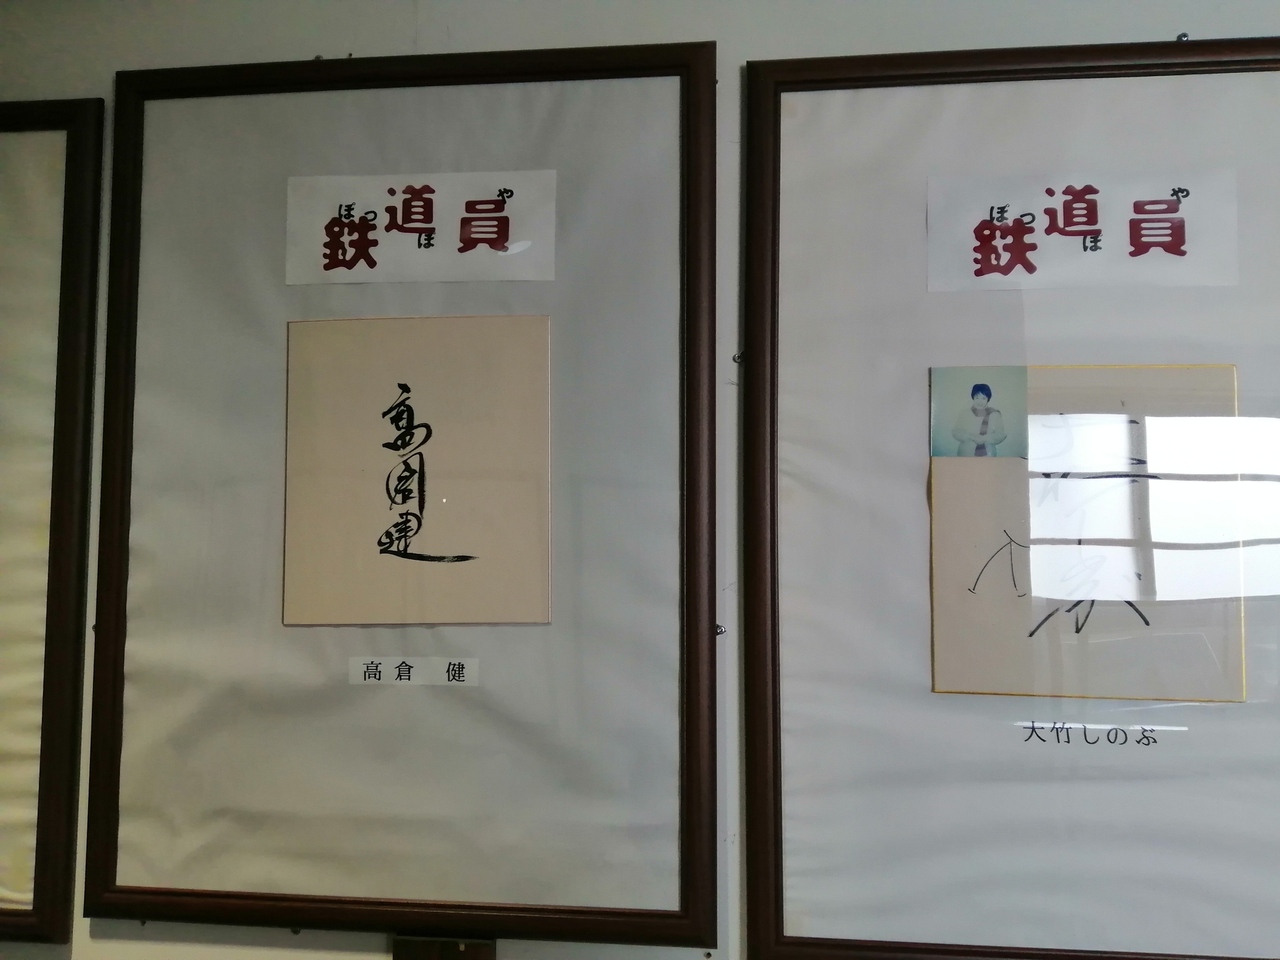 鉄道員
ぽっぽや
高倉健
高倉 健
鉄道員
ぽっぽや
大竹しのぶ